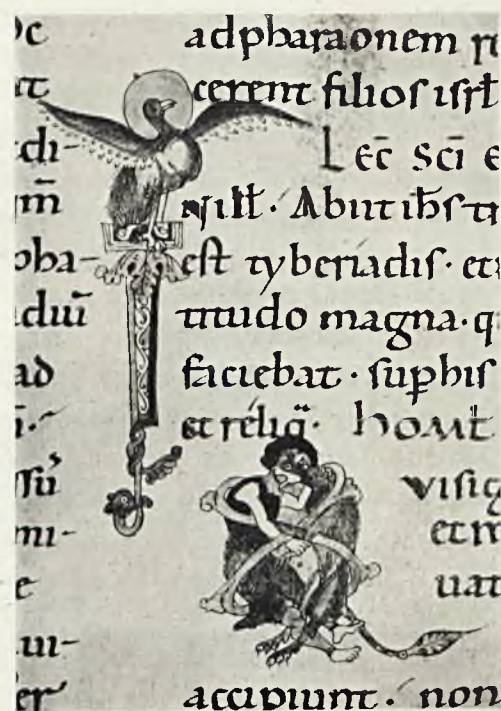 di-
m̄
pha-
diū
ad
ssū
mi-
e
ui-
er
ad pharaonem
cerent filios isrł
Lec̄ Sc̄i e
illł. Abiit ih̄s tr
est tyberiadis. et
titudo magna. q
faciebat. sup his
et reliq̄. homł
visig
et n
uat
accipiunt. non